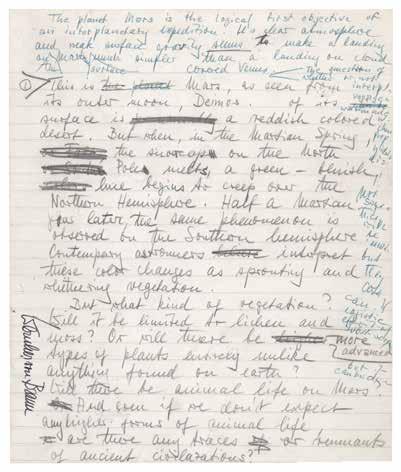 The planet Mars is the logical first objective of
an interplanetary expedition. It's clear atmosphere
and weak surface gravity seems to make a landing
on Mars much simpler than a landing on cloud
the surface covered Venus. The question of
whether or not
① This is the planet Mars, as seen from
its outer moon, Deimos. of its
surface is a reddish colored
desert. But when, in the Martian Spring,
the snowcap on the North
Pole melts, a green-bluish
hue begins to creep over the
Northern Hemisphere. Half a Martian
year later, the same phenomenon is
observed on the Southern hemisphere
Contempory astronomers interpret
these color changes as sprouting and
whithering vegetation.
But what kind of vegetation?
Will it be limited to lichen and
moss? Or will there be higher more
types of plants entirely unlike advanced
anything found on earth?
Will there be animal life on Mars.
And even if we don't expect
any higher forms of animal life
are there any traces or remnants
of ancient civilizations?
Wernher von Braun